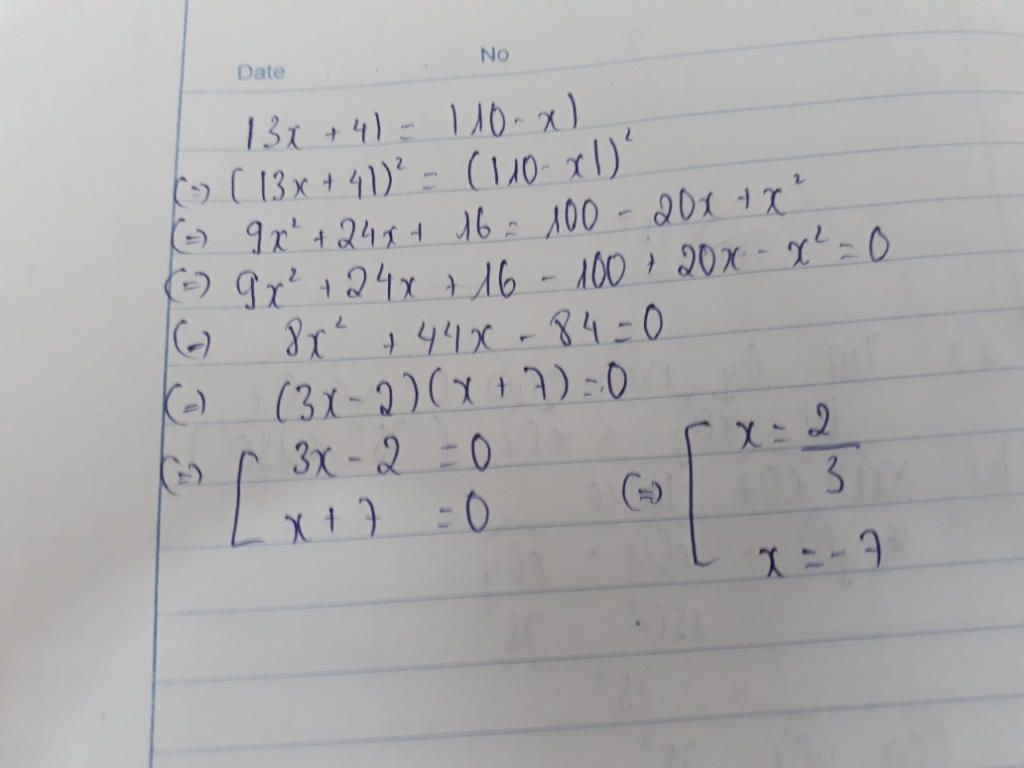 Date No
|3x + 4| = |10 - x|
(=) (|3x + 4|)² = (|10 - x|)²
(=) 9x² + 24x + 16 = 100 - 20x + x²
(=) 9x² + 24x + 16 - 100 + 20x - x² = 0
(=) 8x² + 44x - 84 = 0
(=) (3x - 2)(x + 7) = 0
(=) [ 3x - 2 = 0 (=) [ x = 2/3
x + 7 = 0 x = -7